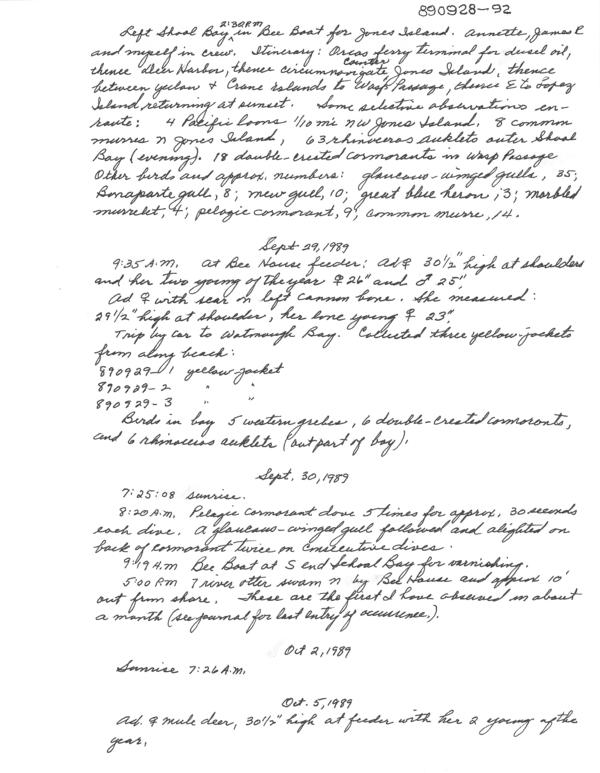 890928-92
Left Shoal Bay 2:30 P.M. in Bee Boat for Jones Island. Annette, James R
and myself in crew. Itinerary: Orcas ferry terminal for diesel oil,
thence Deer Harbor, thence circumnavigate counter Jones Island, thence
between Yellow & Crane islands to Wasp Passage, thence E to Lopez
Island, returning at sunset. Some selective observations en-
route: 4 Pacific loons 1/10 mi NW Jones Island, 8 common
murres N Jones Island, 63 rhinoceros auklets outer Shoal
Bay (evening). 18 double-crested cormorants in Wasp Passage
Other birds and approx. numbers: glaucous-winged gulls, 35;
Bonaparte gull, 8; mew gull, 10; great blue heron, 3; marbled
murrelet, 4; pelagic cormorant, 9; common murre, 14.
Sept 29, 1989
9:35 A.M. At Bee House feeder: Ad ♀ 30½" high at shoulders
and her two young of the year ♀ 26" and ♂ 25"
Ad ♀ with scar on left cannon bone. She measured:
29½" high at shoulder, her lone young ♀ 23"
Trip by car to Watmough Bay. Collected three yellow-jackets
from along beach:
890929-1 yellow jacket
890929-2 " "
890929-3 " "
Birds in bay 5 western grebes, 6 double-crested cormorants,
and 6 rhinoceros auklets (out part of bay).
Sept. 30, 1989
7:25:08 sunrise.
8:20 A.M. Pelagic cormorant dove 5 times for approx. 30 seconds
each dive. A glaucous-winged gull followed and alighted on
back of cormorant twice on consecutive dives.
9:19 A.M Bee Boat at S end School Bay for varnishing.
5:00 PM 7 river otter swam N by Bee House and approx 10'
out from shore. These are the first I have observed in about
a month (see journal for last entry of occurrence.).
Oct 2, 1989
Sunrise 7:26 A.M.
Oct. 5, 1989
Ad. ♀ mule deer, 30½" high at feeder with her 2 young of the
year.